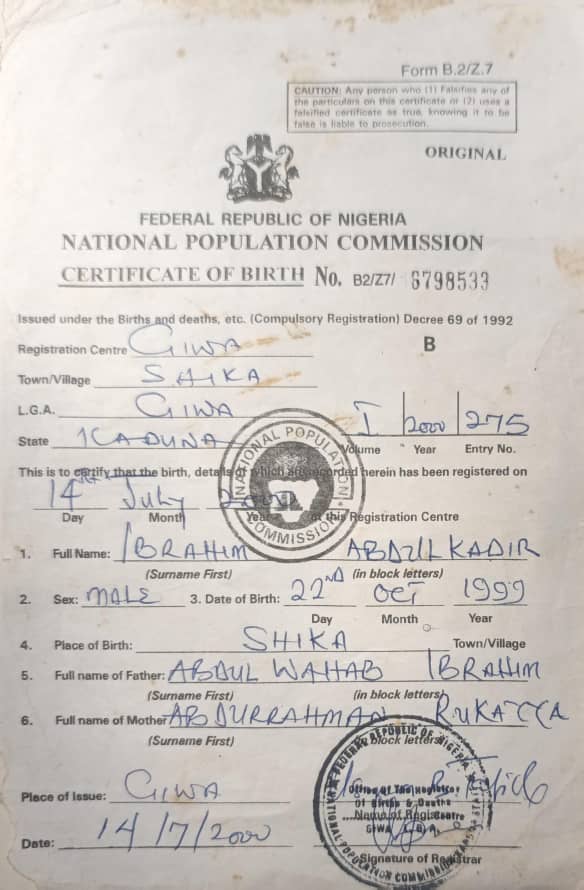 Form B.2/Z.7
CAUTION: Any person who (1) Falsifies any of
the particulars on this certificate or (2) uses a
falsified certificate as true, knowing it to be
false is liable to prosecution.
ORIGINAL
FEDERAL REPUBLIC OF NIGERIA
NATIONAL POPULATION COMMISSION
CERTIFICATE OF BIRTH No. B2/Z7/ 6798533
Issued under the Births and deaths, etc. (Compulsory Registration) Decree 69 of 1992
Registration Centre GIWA B
Town/Village SHIKA
L.G.A. GIWA I 2000 275
State KADUNA Volume Year Entry No.
NATIONAL POPULATION COMMISSION
This is to certify that the birth, details of which are recorded herein has been registered on
14 July 2000
Day Month Year at this Registration Centre
1. Full Name: IBRAHIM ABDULKADIR
(Surname First) (in block letters)
2. Sex: MALE 3. Date of Birth: 22ND OCT 1999
Day Month Year
4. Place of Birth: SHIKA Town/Village
5. Full name of Father: ABDUL WAHAB IBRAHIM
(Surname First) (in block letters)
6. Full name of Mother ABDURRAHMAN
(Surname First) (in block letters)
Place of Issue: GIWA
Office of The Registrar
Of Births & Deaths
Name of Registrar
GIWA L.G.A.
Date: 14/7/2000
Signature of Registrar